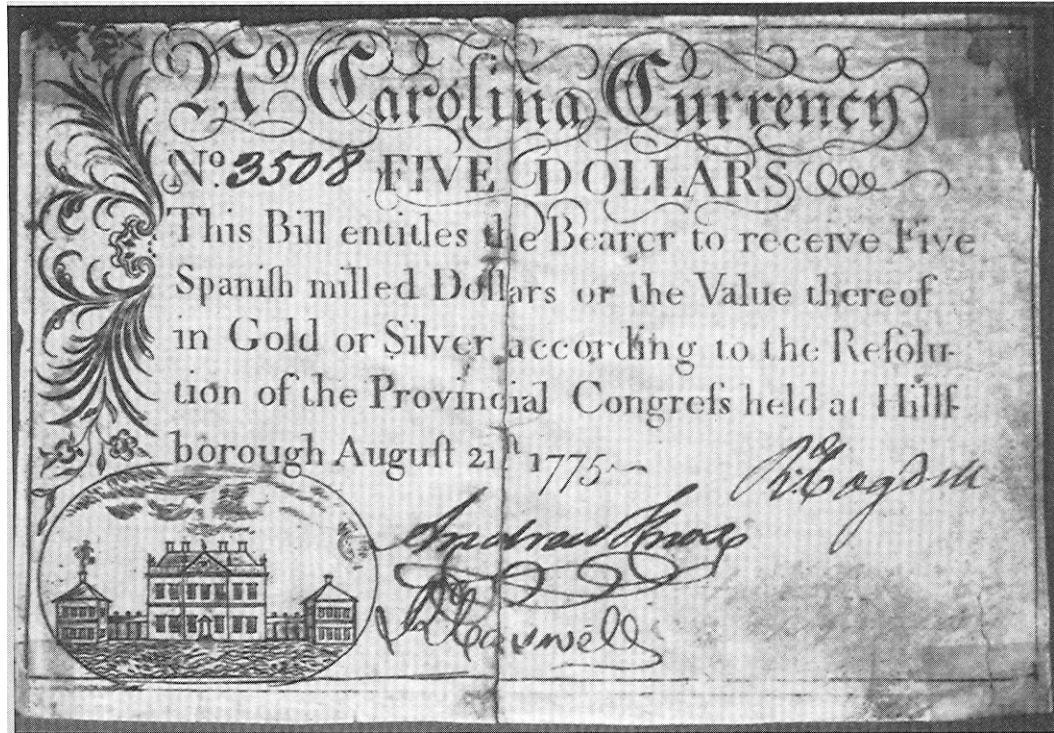 No Carolina Currency
No. 3508 FIVE DOLLARS
This Bill entitles the Bearer to receive Five
Spaniſh milled Dollars or the Value thereof
in Gold or Silver according to the Reſolu-
tion of the Provincial Congreſs held at Hillſ-
borough Auguſt 21ſt 1775
Rd. Cogdell
Andrew Knox
Rd. Caswell